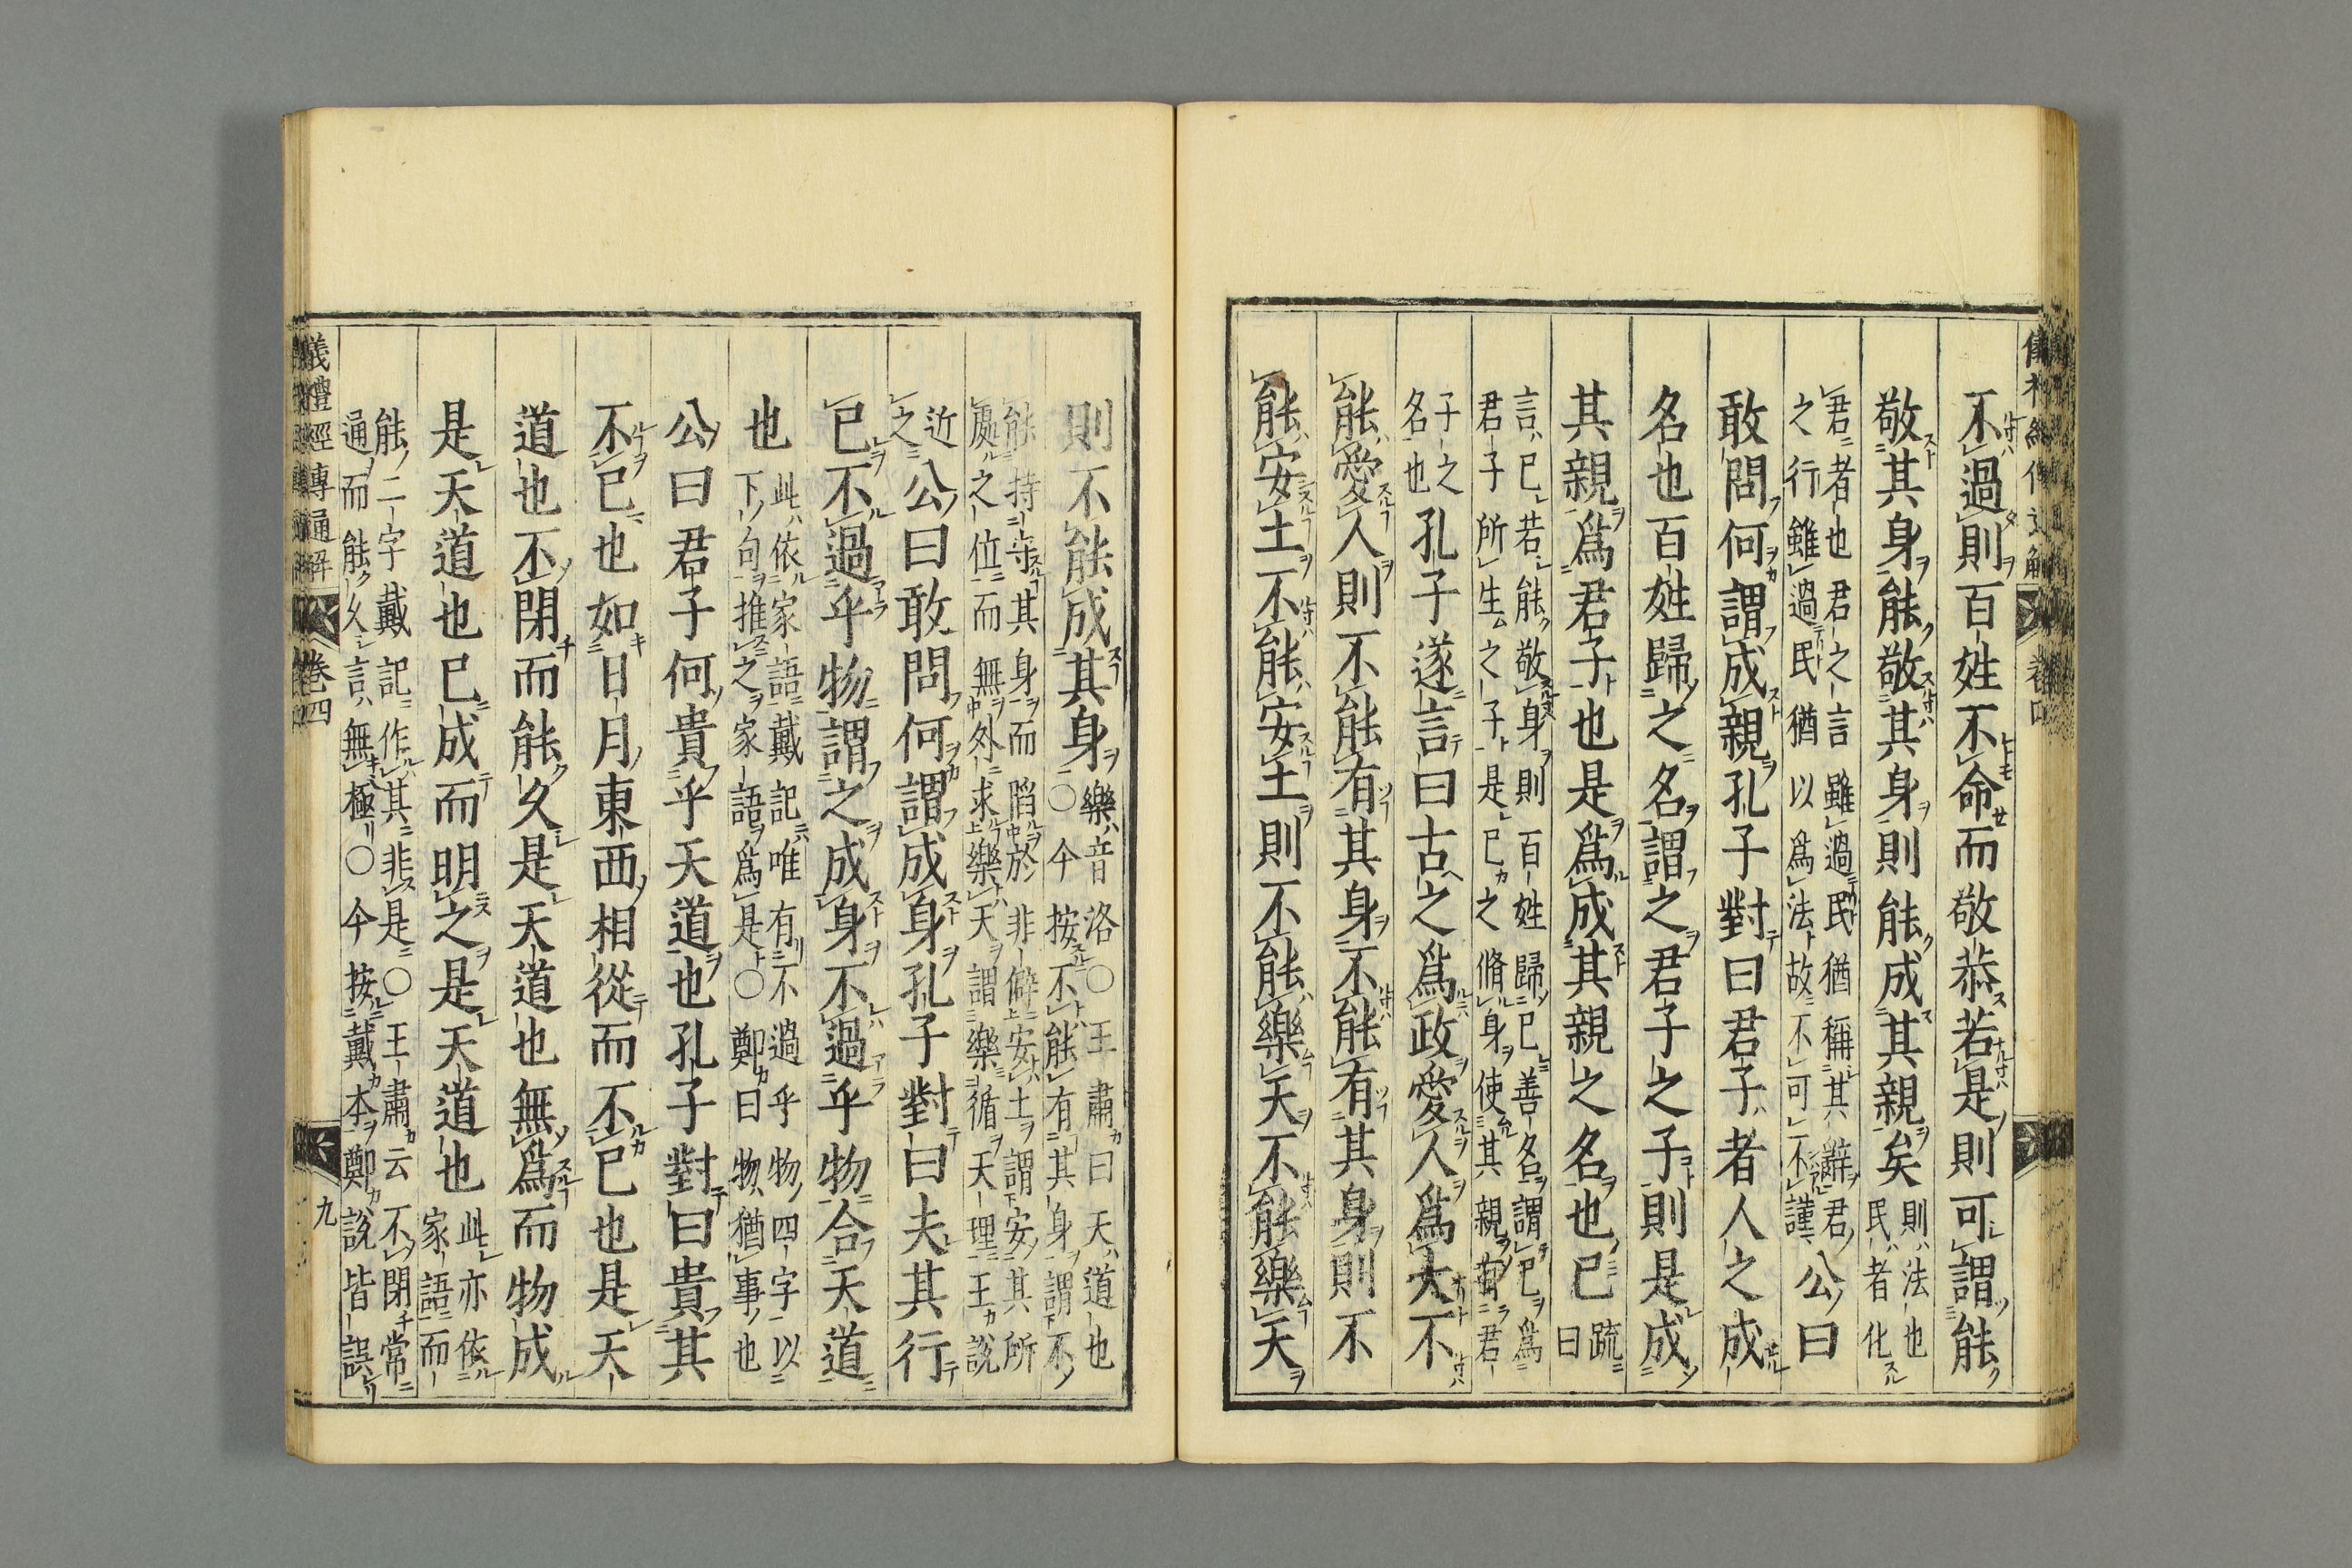 不過則百姓不命而敬恭若是則可謂能
敬其身能敬其身則能成其親矣
則法也
民者化
君者也君之言雖過民猶稱其辭君
之行雖過民猶以爲法故不可不謹
公曰
敢問何謂成親孔子對曰君子者人之成
名也百姓歸之名謂之君子之子則是成
其親爲君子也是爲成其親之名也已
疏
曰
言已若能敬身則百姓歸已善名謂已爲
君子所生之子是已之脩身使其親有君
子之
名也
孔子遂言曰古之爲政愛人爲大不
能愛人則不能有其身不能有其身則不
能安土不能安土則不能樂天不能樂天
則不能成其身
樂音洛○王肅曰天道也
○今按不能有其身謂不
能持守其身而陷於非僻安土謂安其所
處之位而無外求樂天謂樂循天理王說
近
之
公曰敢問何謂成身孔子對曰夫其行
已不過乎物謂之成身不過乎物合天道
也
此依家語戴記唯有不過乎物四字以
下句推之家語爲是○鄭曰物猶事也
公曰君子何貴乎天道也孔子對曰貴其
不已也如日月東西相從而不已也是天
道也不閉而能久是天道也無爲而物成
是天道也已成而明之是天道也
此亦依
家語而
能二字戴記作其非是○王肅云不閉常
通而能久言無極○今按戴本鄭說皆誤
儀禮經傳通解 卷四 九